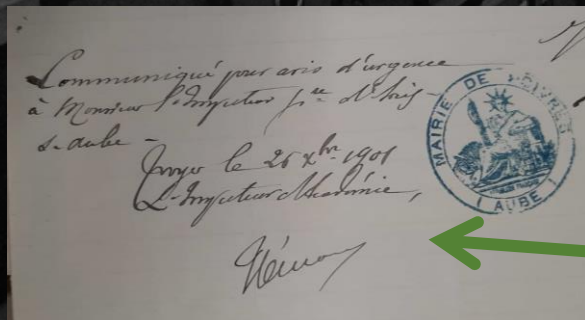 Communiqué pour avis d'urgence
à Monsieur l'Inspecteur p.re d'Arcis-
s-aube -
Troyes le 26 Xbre 1901
L'Inspecteur d'Académie,
MAIRIE DE POIVRES
( AUBE )